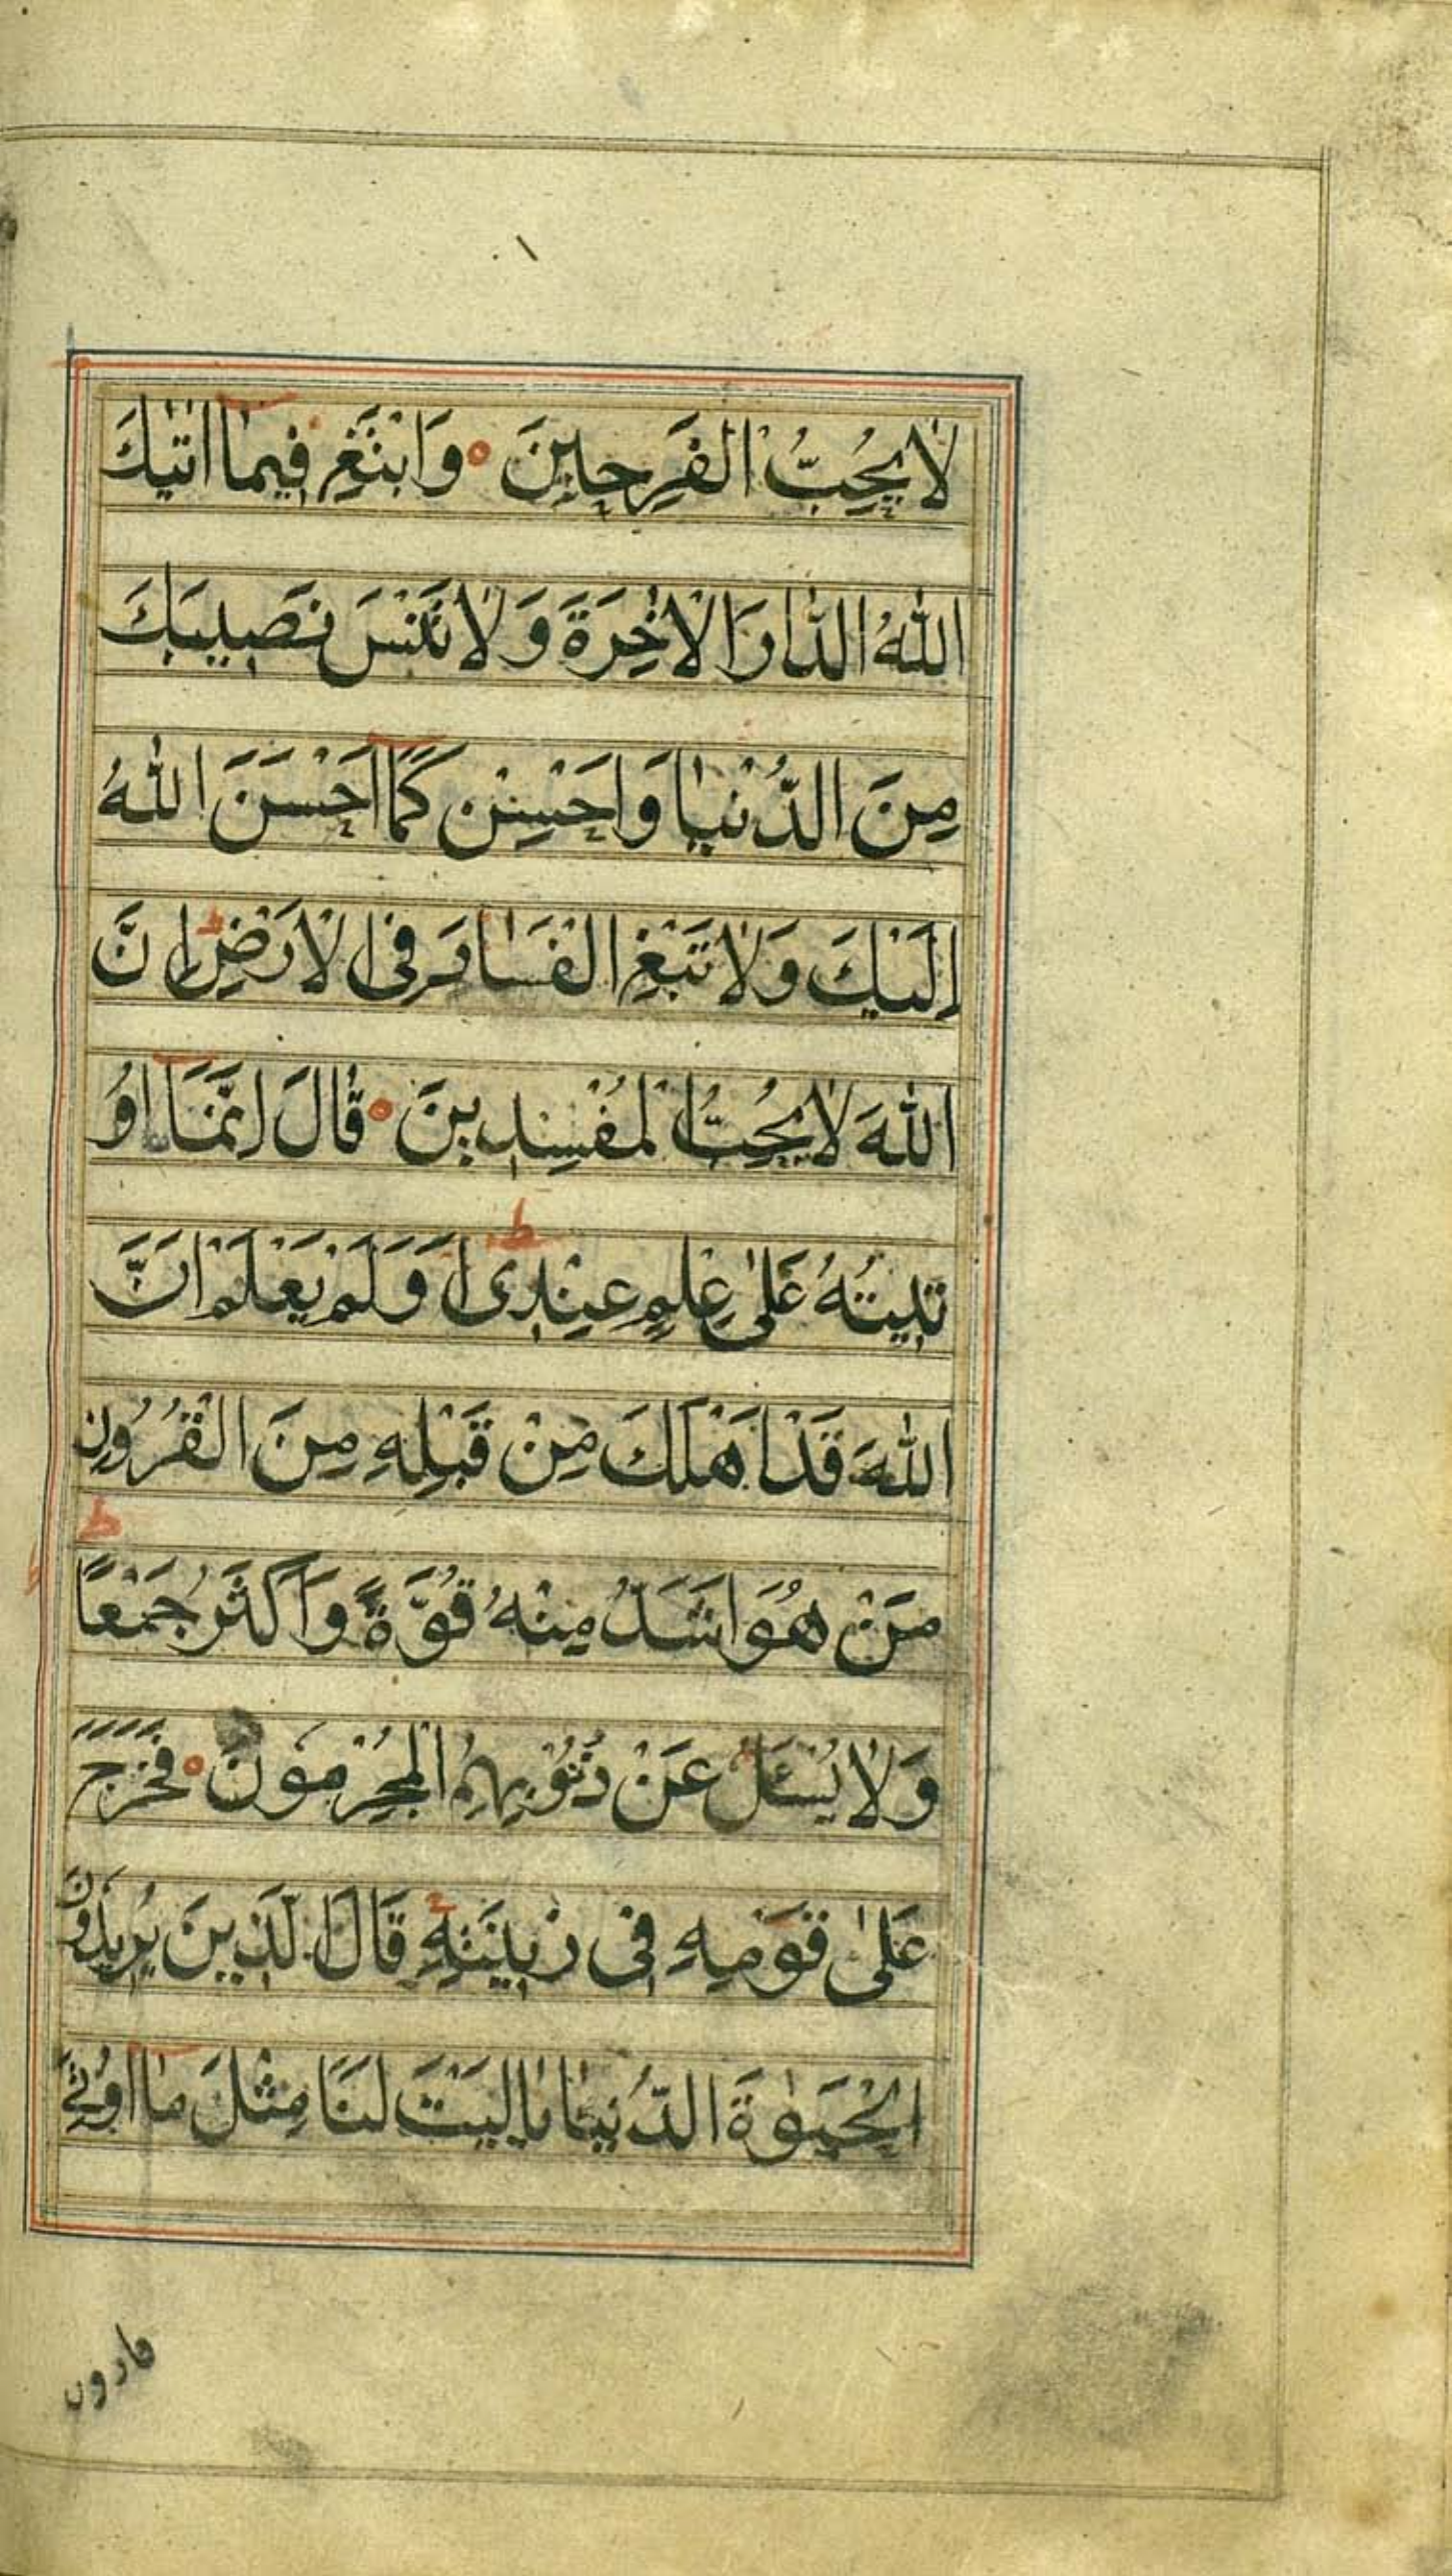 لَا يُحِبُّ الْفَرِحِينَ ۰ وَابْتَغِ فِيمَا اتٰيكَ
اللّٰهُ الدَّارَ الْاٰخِرَةَ وَلَا تَنْسَ نَصِيبَكَ
مِنَ الدُّنْيَا وَاَحْسِنْ كَمَا اَحْسَنَ اللّٰهُ
اِلَيْكَ وَلَا تَبْغِ الْفَسَادَ فِى الْاَرْضِ ط اِنَّ
اللّٰهَ لَا يُحِبُّ الْمُفْسِدِينَ ۰ قَالَ اِنَّمَا اُو
تِيتُهُ عَلٰى عِلْمٍ عِنْدِى ط اَوَلَمْ يَعْلَمْ اَنَّ
اللّٰهَ قَدْ اَهْلَكَ مِنْ قَبْلِهِ مِنَ الْقُرُونِ
مَنْ هُوَ اَشَدُّ مِنْهُ قُوَّةً وَاَكْثَرُ جَمْعًا ط
وَلَا يُسْئَلُ عَنْ ذُنُوبِهِمُ الْمُجْرِمُونَ ۰ فَخَرَجَ
عَلٰى قَوْمِهِ فِى زِينَتِهِ قَالَ الَّذِينَ يُرِيدُونَ
الْحَيٰوةَ الدُّنْيَا يَالَيْتَ لَنَا مِثْلَ مَا اُوتِىَ
قارون